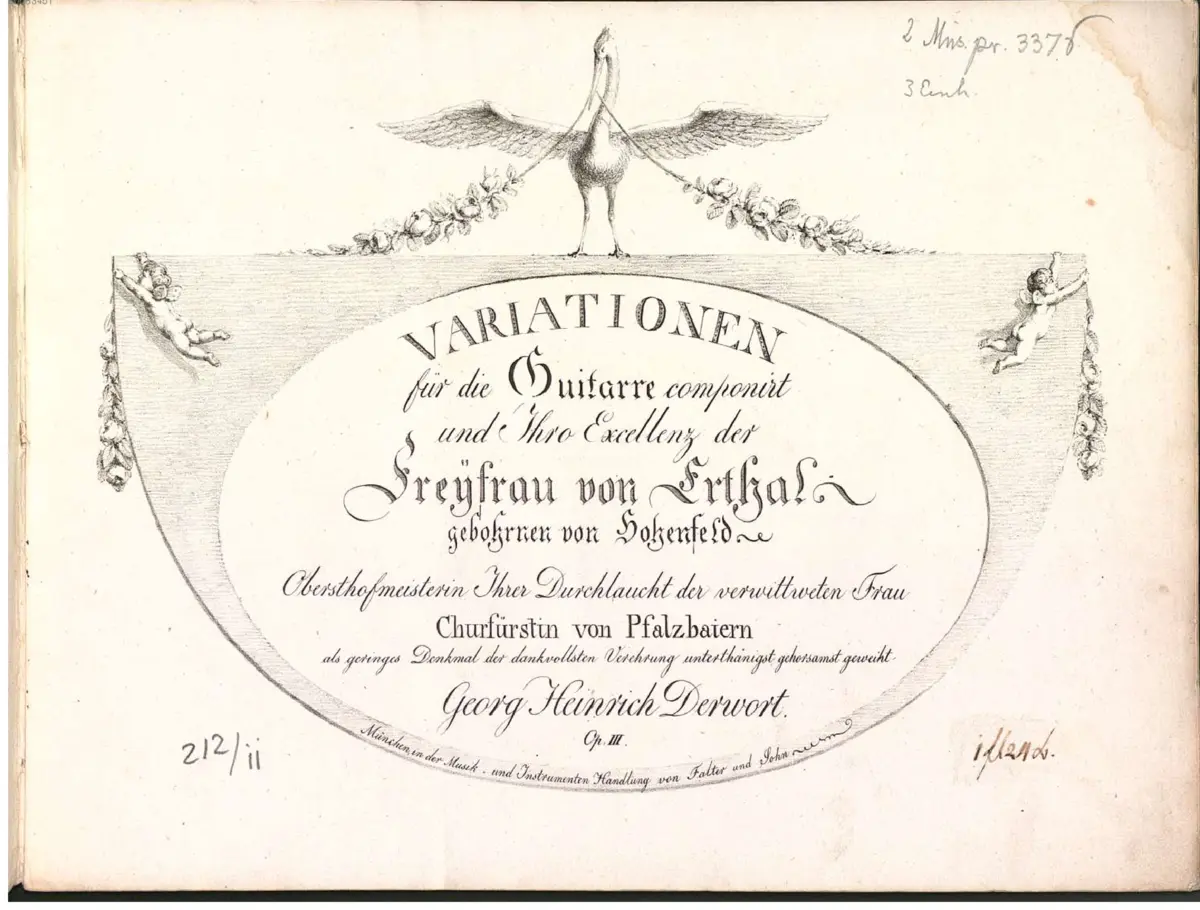 2 Mus. pr. 3378
3 Einh.
VARIATIONEN
für die Guitarre componirt
und Ihro Excellenz der
Freÿfrau von Erthal
gebohrnen von Hohenfeld
Obersthofmeisterin Ihrer Durchlaucht der verwittweten Frau
Churfürstin von Pfalzbaiern
als geringes Denkmal der dankvollsten Verehrung unterthänigst gehorsamst geweiht
Georg Heinrich Derwort.
Op. III.
München, in der Musick- und Instrumenten Handlung von Falter und Sohn
212/ii